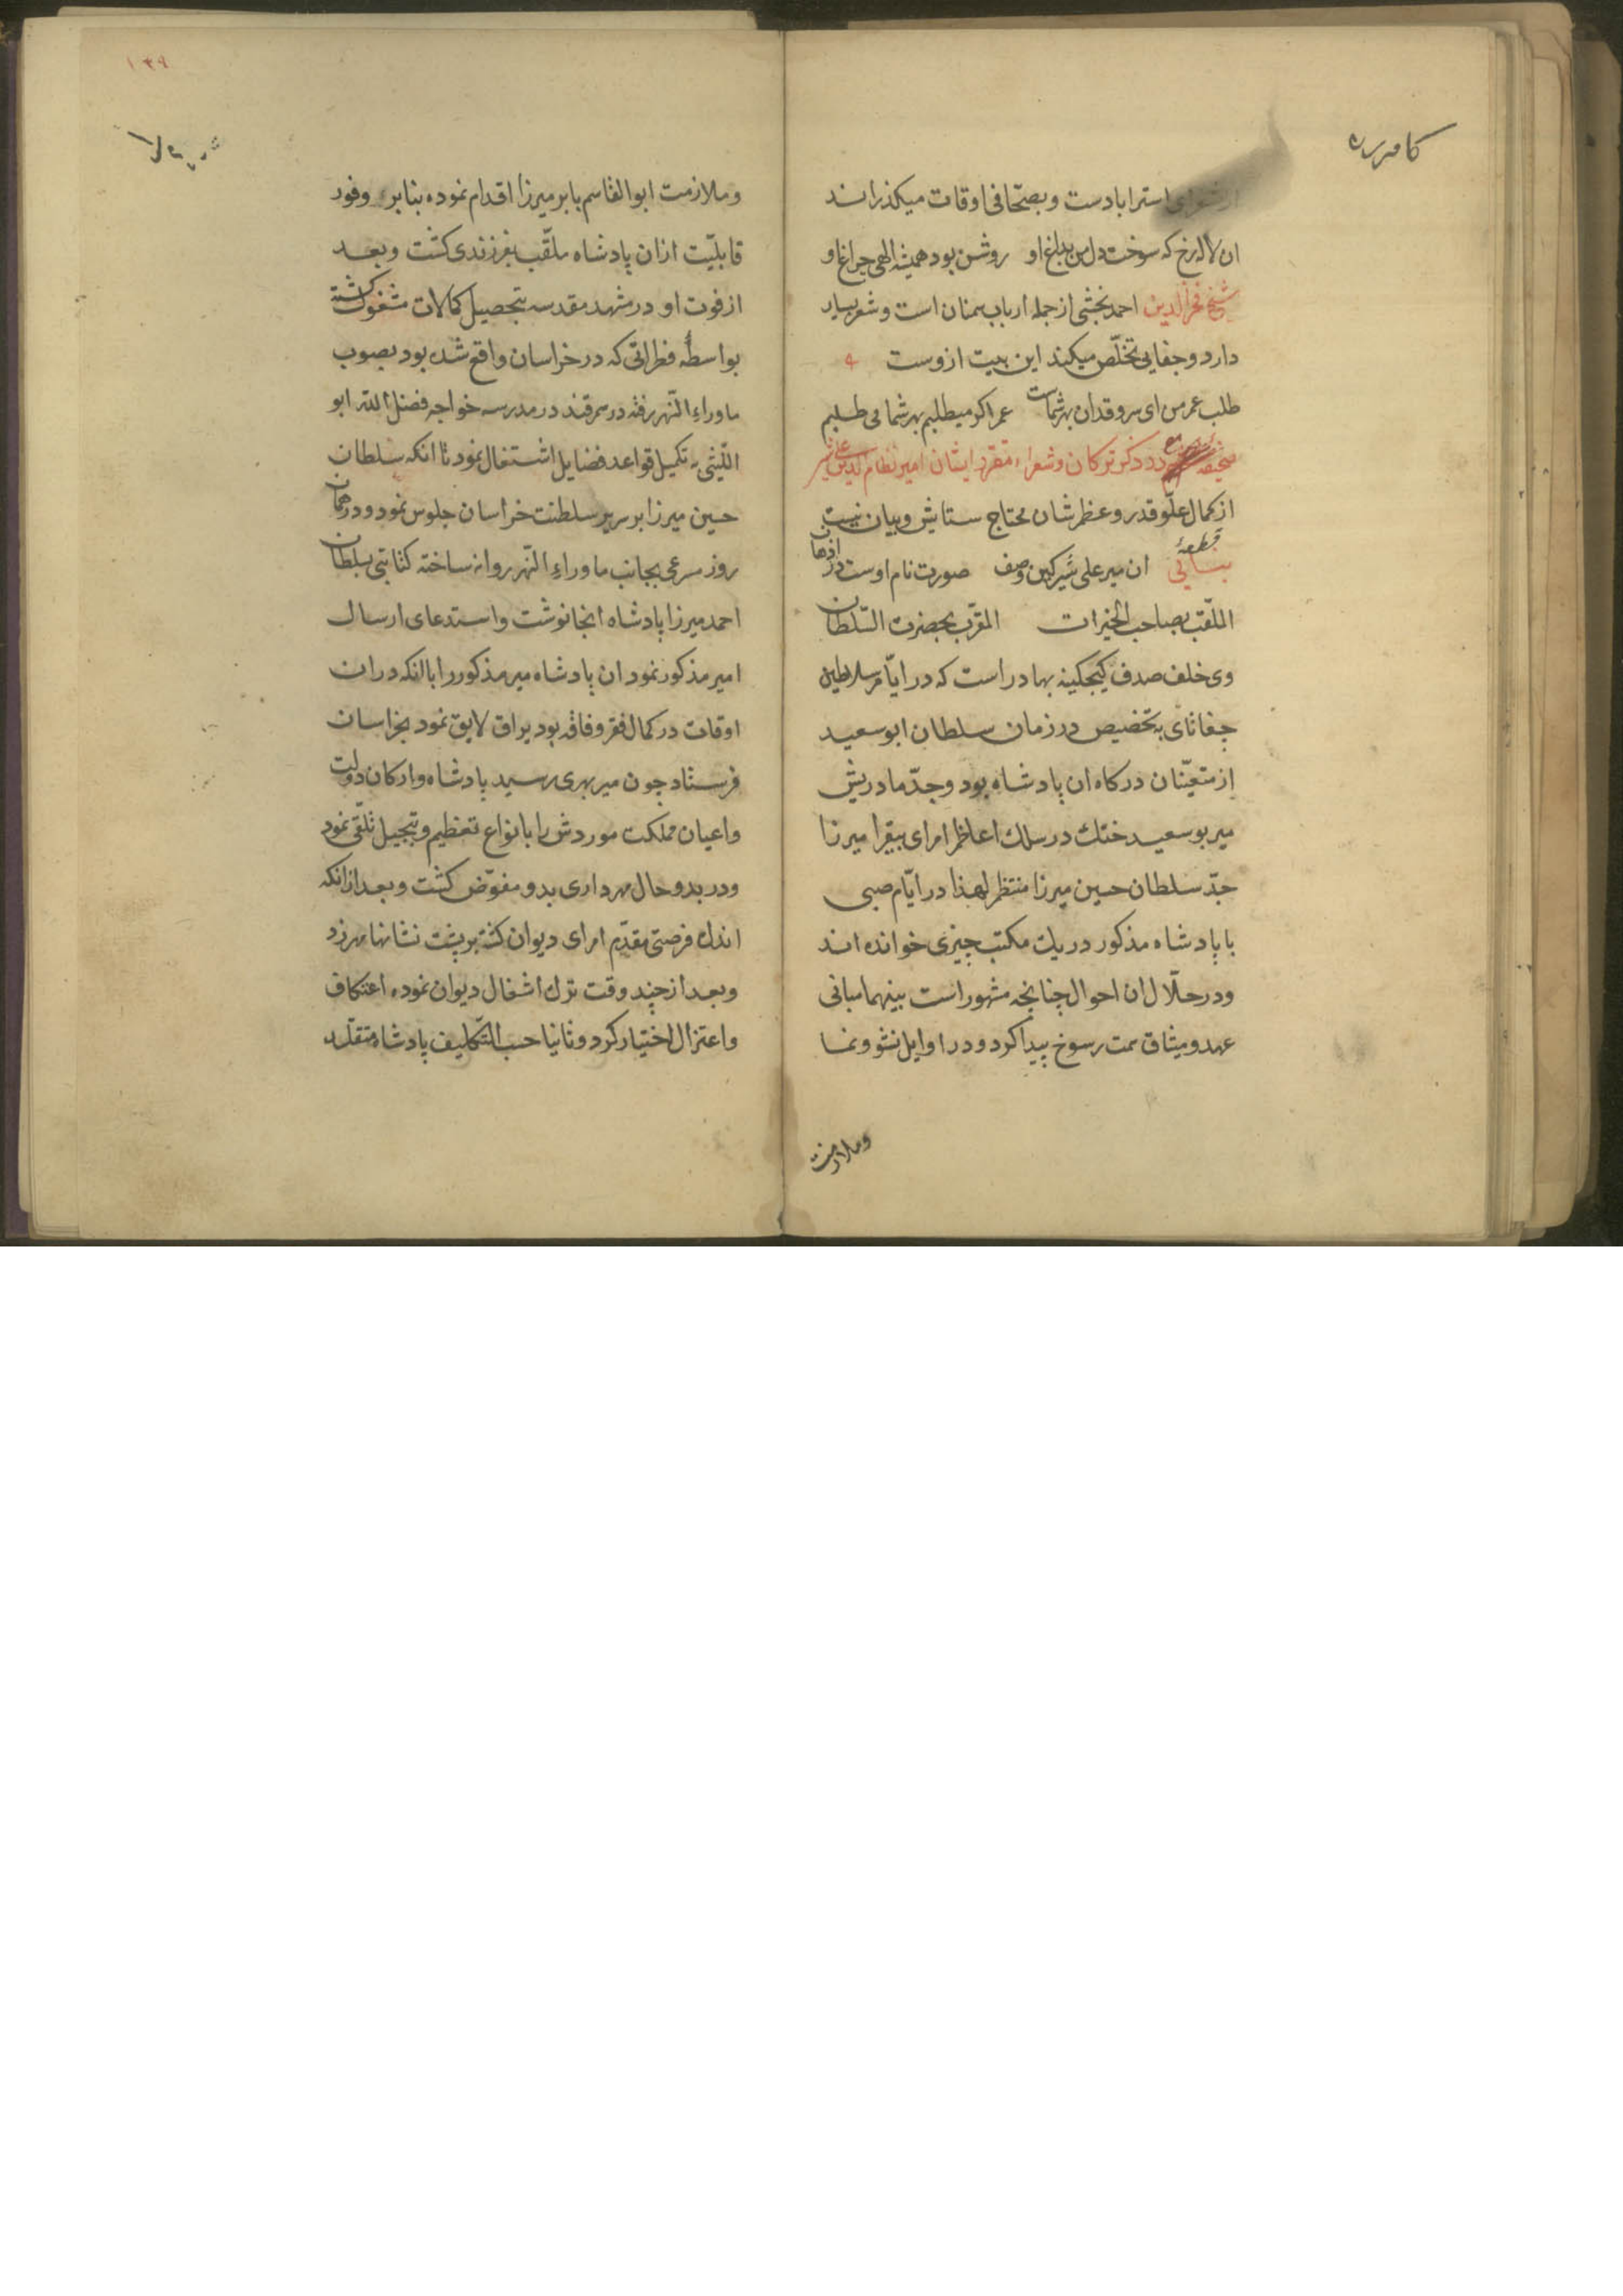 از شعرای استراباد ست و بصحّافی اوقات میکذراند
ان لاله رخ که سوخت دل من بداغ او روشن بود همیشه الهی چراغ او
شیخ فخرالدین احمد بخشی از جمله ارباب سمنان است و شعر بسیار
دارد و جفایی تخلّص میکند این بیت ازوست
طلب عمر من ای سرو قدان بهر شماست عمر اکر میطلبم بهر شما می طلبم
صحیفه در ذکر ترکان و شعراء مقرر ایشان امیر نظام الدین علی شیر
از کمال علوّ قدر و عظم شان محتاج ستایش و بیان نیست
قطعهٔ
بنائی ان میر علی شیر کمین وصف صورت نام اوست در اذهان
الملقّب بصاحب الخیرات المقرّب بحضرت السّلطان
وی خلف صدف کیجکینه بهادر است که در ایّام سلاطین
جغاتای بتخصیص در زمان سلطان ابو سعید
از متعیّنان درکاه ان پادشاه بود و جدّ مادریش
میر بو سعید ختك در سلك اعاظم امرای بیقرا میرزا
جدّ سلطان حسین میرزا منتظم لهذا در ایّام صبی
با پادشاه مذکور در یك مکتب چیزی خوانده اند
و در خلّال ان احوال چنانچه مشهور است بینهما مبانی
عهد و میثاق سمت رسوخ پیدا کرد و در اوایل نشو و نما
وملازمت
۱۳۹
وملازمت ابوالقاسم بابر میرزا اقدام نموده بنابر وفور
قابلیّت ازان پادشاه ملقّب بفرزندی کشت و بعد
از فوت او در مشهد مقدسه بتحصیل کمالات مشغول کشته
بواسطهٔ فطراتی که در خراسان واقع شده بود بصوب
ماوراء النّهر رفته در سمرقند در مدرسه خواجه فضل الله ابو
اللّیثی بتکمیل قواعد فضایل اشتغال نمود تا انکه سلطان
حسین میرزا بر سریر سلطنت خراسان جلوس نمود و در همان
روز مسرعی بجانب ماوراء النّهر روانه ساخته کتابتی بسلطان
احمد میرزا پادشاه انجا نوشت و استدعای ارسال
امیر مذکور نمود ان پادشاه میر مذکور را با انکه دران
اوقات در کمال فقر و فاقه بود یراق لایق نمود بخراسان
فرستاد چون میر بهری رسید پادشاه و ارکان دولت
و اعیان مملکت موردش را بانواع تعظیم و تبجیل تلّقی نمود
و در بدو حال مهر داری بدو مفوّض کشت و بعد ازانکه
اندك فرصتی مقدّم امرای دیوان کشته بر پشت نشانها مهر زد
و بعد از چند وقت ترك اشغال دیوان نموده اعتکاف
و اعتزال اختیار کرد و ثانیا حسب التّکلیف پادشاه متقلّد